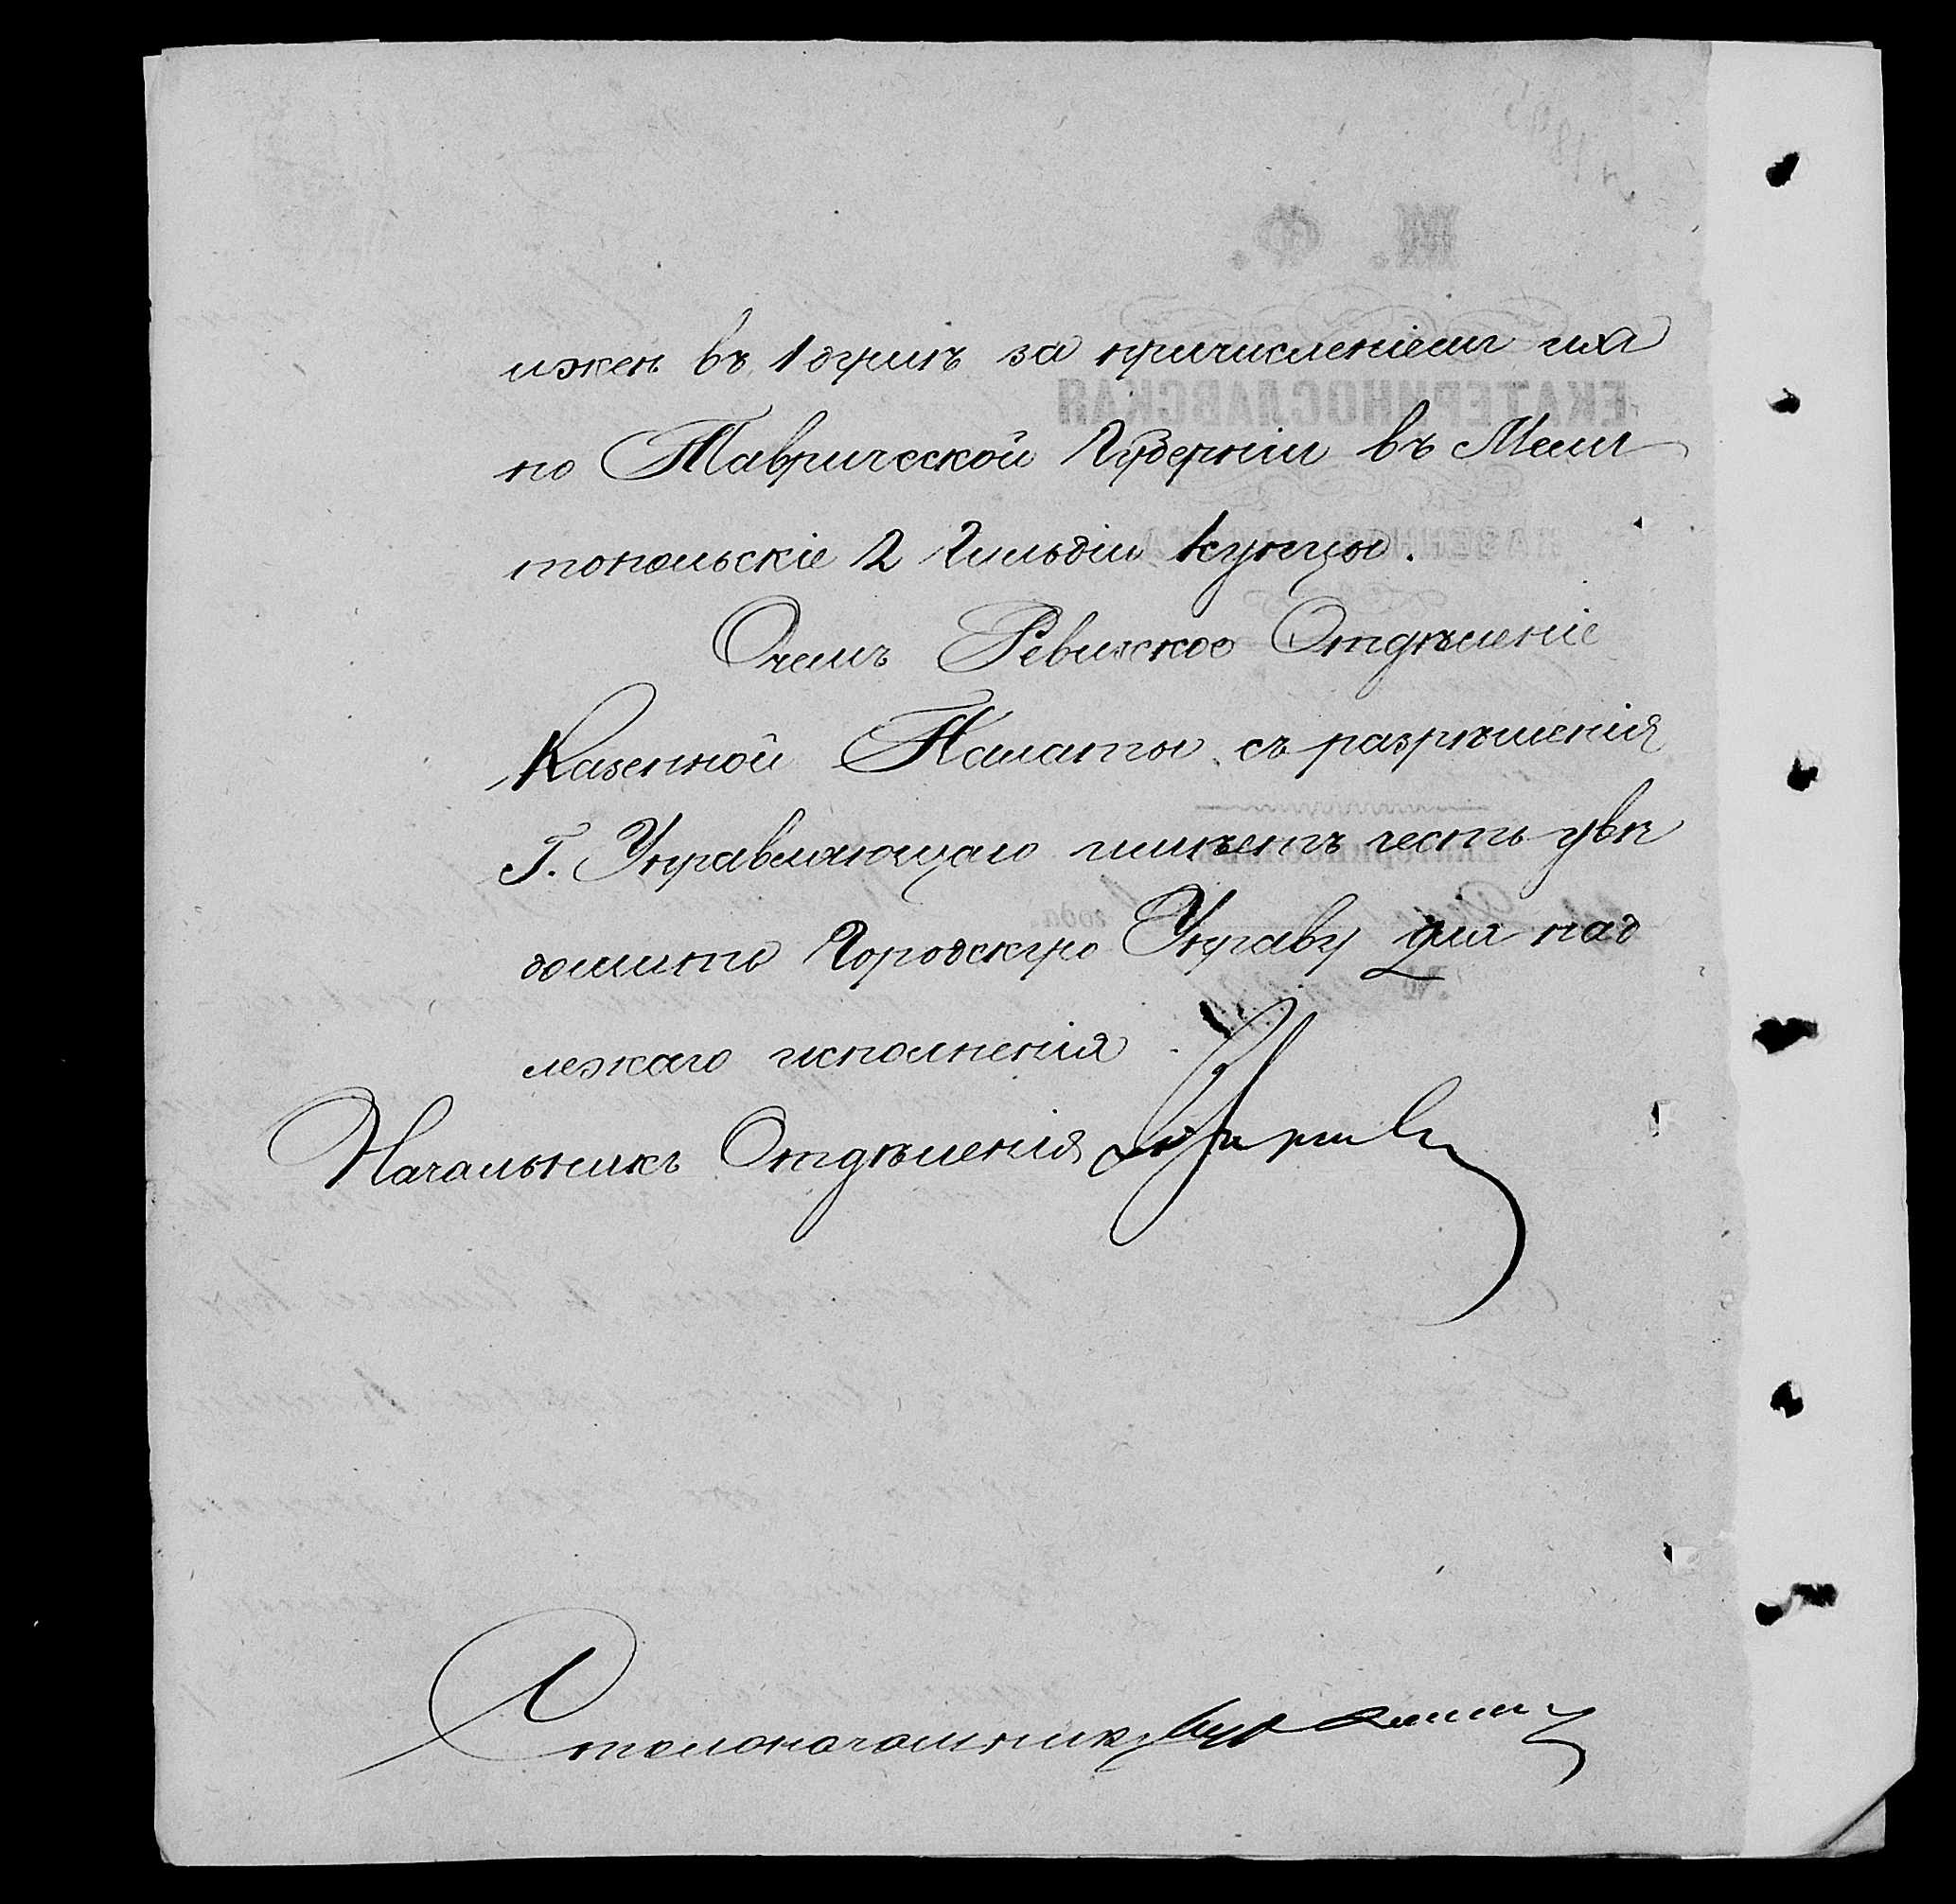 ижен въ 1 душѣ за причисленіемъ ихъ
по Таврической Губерніи въ Мели
топольскіе 2 Гильдіи купцы.
Очемъ Ревизское Отдѣленіе
Казенной Палаты съ разрѣшенія
Г. Управляющаго имѣетъ честь увѣ
домить Городскую Управу для над
лежаго исполненія
Начальникъ Отдѣленія
Столоначальникъ
М. Ф.
ЕКАТЕРИНОСЛАВСКАЯ
года
№